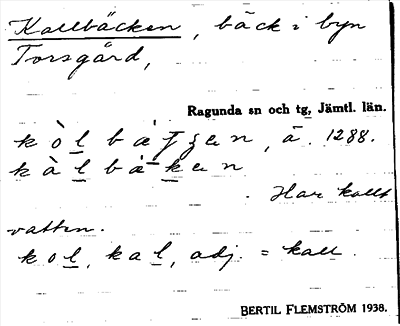 Kallbäcken, bäck i byn
Torsgård,
Ragunda sn och tg, Jämtl. län.
kòlbaʈʂen, ä. 1288.
kàlbàken
. Har kallt
vatten.
kol, kal, adj. = kall.
BERTIL FLEMSTRÖM 1938.